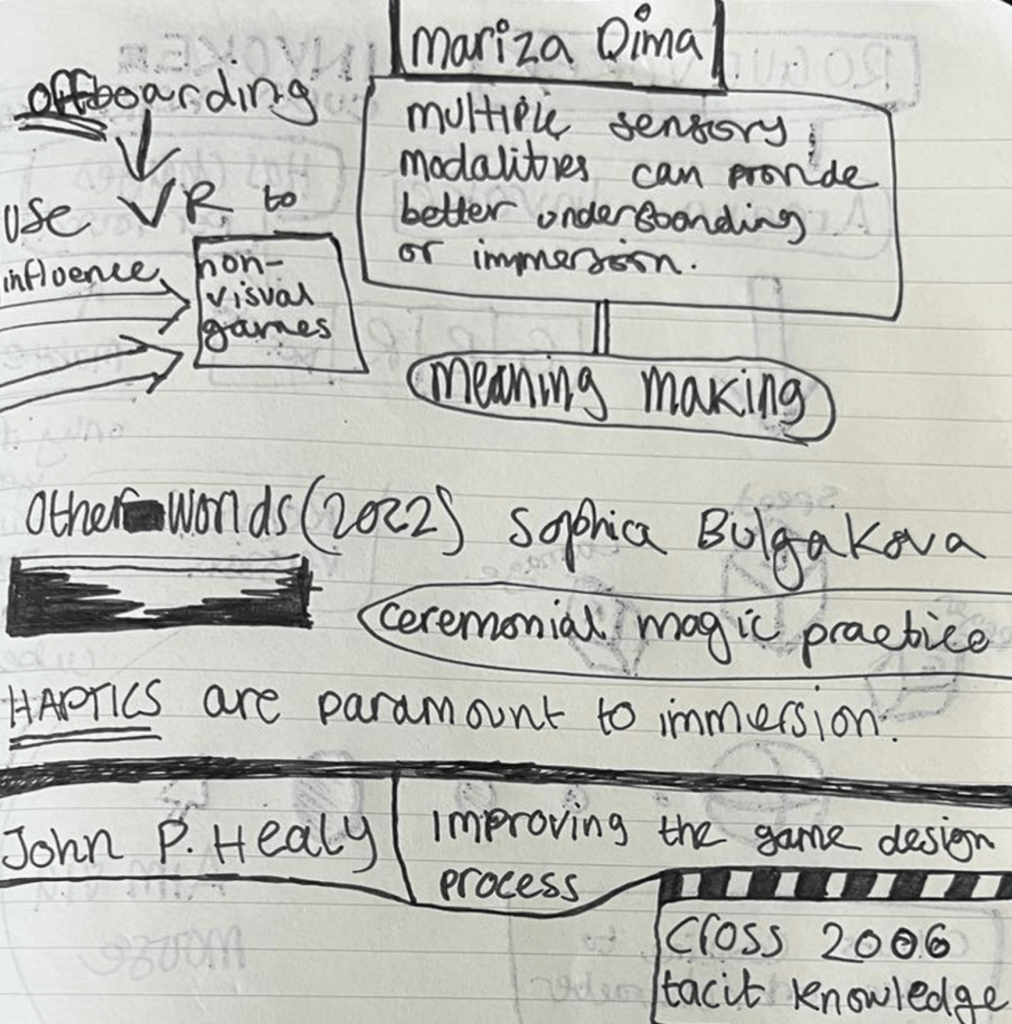 Mariza Dima
offboarding
multiple sensory
modalities can provide
better understanding
or immersion.
use VR to
influence
non-
visual
games
meaning making
Other Worlds (2022) Sophia Bulgakova
ceremonial magic practice
HAPTICS are paramount to immersion.
John P. Healy
improving the game design
process
Cross 2006
tacit knowledge